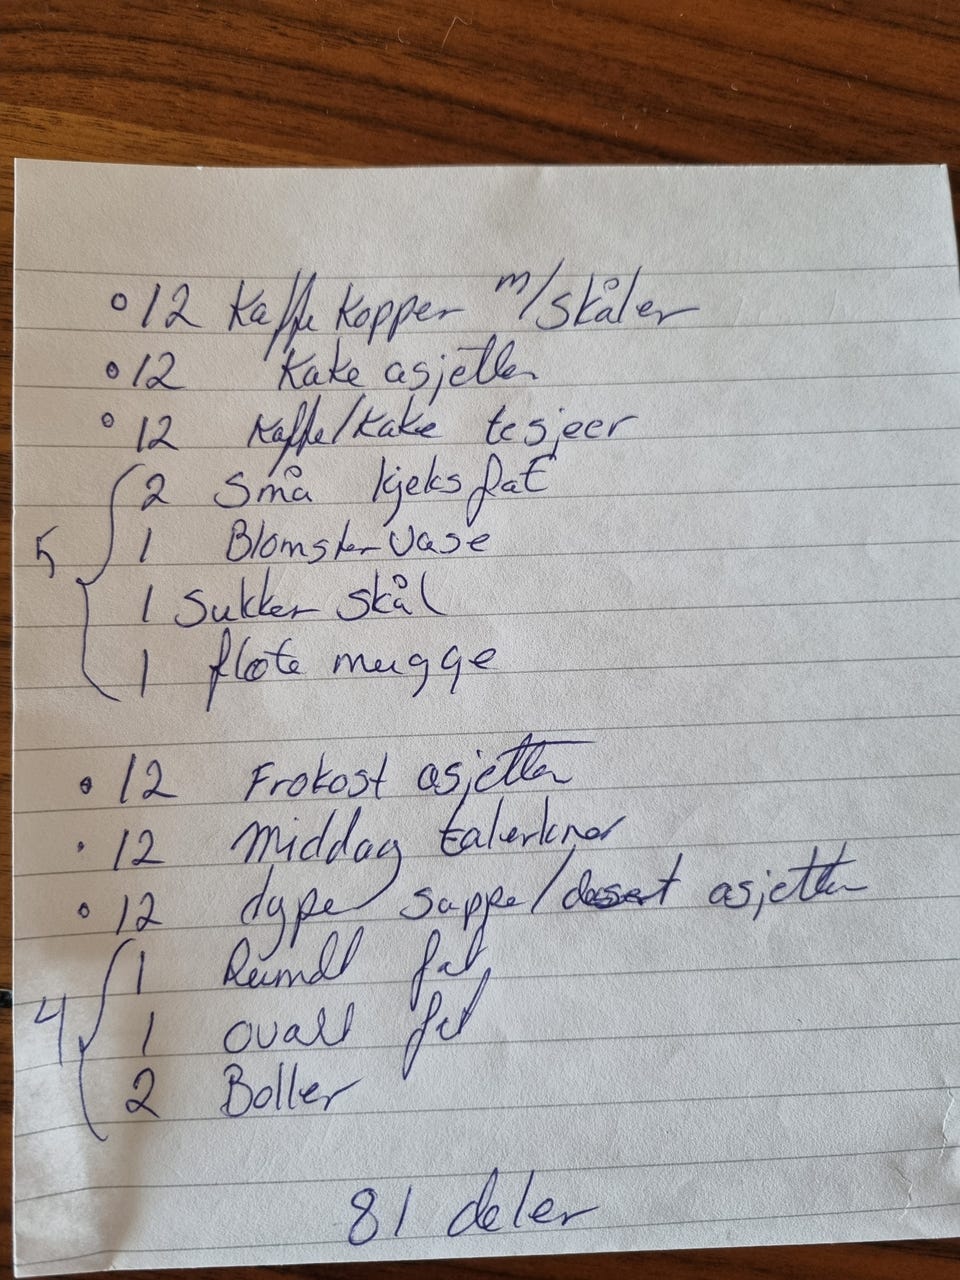 12 Kaffe Kopper m/skåler
12 Kake asjetter
12 Kaffe/Kake tesjeer
2 små kjeks fat
5
1 Blomster vase
1 Sukker skål
1 fløte mugge
12 Frokost asjetter
12 middag talerkner
12 dype suppe/desert asjetter
1 Rundt fat
4
1 ovalt fat
2 Boller
81 deler